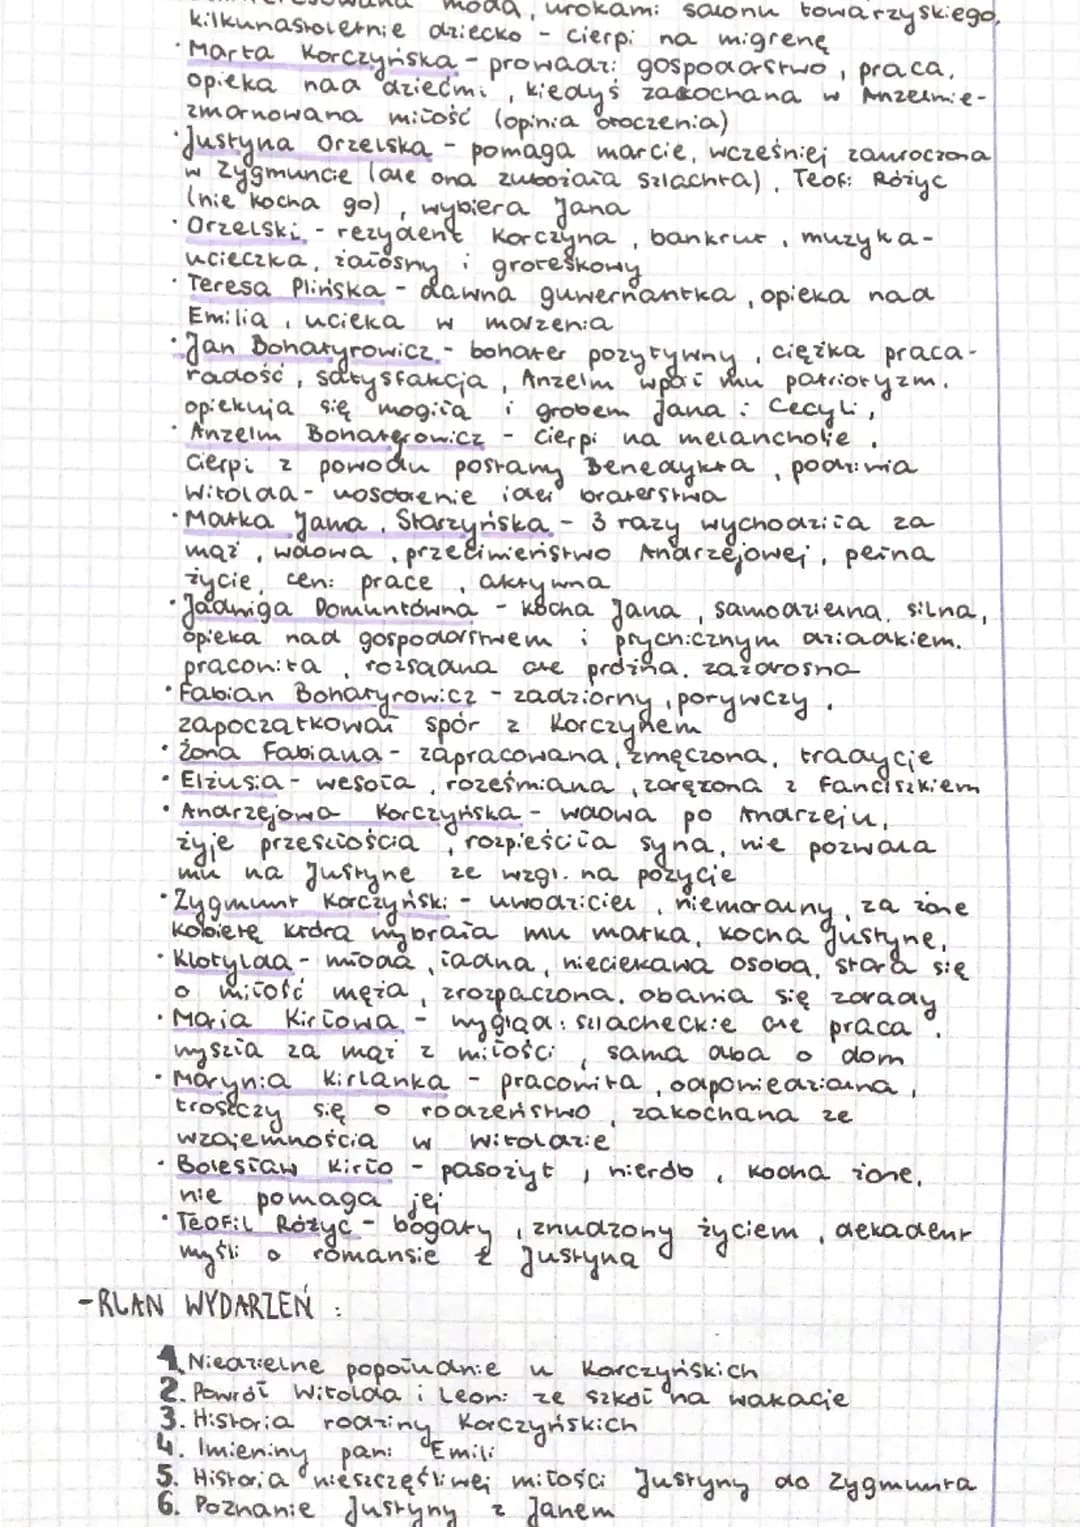 moda, urokami salonu towarzyskiego,
kilkunastoletnie dziecko - cierpi na migrenę
· Marta Korczyńska - prowadzi gospodarstwo, praca,
opieka nad dziećmi, kiedyś zakochana w Anzelmie-
zmarnowana miłość (opinia otoczenia)
· Justyna Orzelska - pomaga marcie, wcześniej zauroczona
w Zygmuncie (ale ona zubożała szlachta), Teofil Różyc
(nie kocha go), wybiera Jana
· Orzelski - rezydent Korczyna, bankrut, muzyka-
ucieczka, żałosny i groteskowy
· Teresa Plińska - dawna guwernantka, opieka nad
Emilią, ucieka w marzenia
· Jan Bohatyrowicz - bohater pozytywny, ciężka praca-
radość, satysfakcja, Anzelm wpoił mu patriotyzm,
opiekują się mogiłą i grobem Jana i Cecyli,
· Anzelm Bohaterowicz - cierpi na melancholie,
cierpi z powodu postawy Benedykta, podziwia
Witolda - uosobienie idei braterstwa
· Matka Jana, Starzyńska - 3 razy wychodziła za
mąż, wdowa, przeciwieństwo Andrzejowej, pełna
życie, ceni prace, aktywna
· Jadwiga Domuntówna - kocha Jana, samodzielna, silna,
opieka nad gospodarstwem i psychicznym dziadkiem,
pracowita, rozsądna ale próżna, zazdrosna
· Fabian Bohatyrowicz - zadziorny, porywczy,
zapoczątkował spór z Korczynem
· Żona Fabiana - zapracowana, zmęczona, tradycje
· Elżusia - wesoła, roześmiana, zaręzona z Fanciszkiem
· Andrzejowa Korczyńska - wdowa po Andrzeju,
żyje przeszłością, rozpieściła syna, nie pozwala
mu na Justyne ze wzgl. na pozycje
· Zygmunt Korczyński - uwodziciel, niemoralny, za żone
kobietę którą wybrała mu matka, kocha Justyne,
· Klotylda - młoda, ładna, nieciekawa osoba, stara się
o miłość męża, zrozpaczona, obawia się zdrady
· Maria Kirłowa - wygląd: szlacheckie ale praca,
wyszła za mąż z miłości, sama dba o dom
· Marynia Kirlanka - pracowita, odpowiedzialna,
troszczy się o rodzeństwo, zakochana ze
wzajemnością w Witoldzie
· Bolesław Kirło - pasożyt, nierób, kocha żone,
nie pomaga jej
· Teofil Różyc - bogaty, znudzony życiem, dekadent
myśli o romansie z Justyną
- PLAN WYDARZEŃ:
1. Niedzielne popołudnie u Korczyńskich
2. Powrót Witolda i Leoni ze szkół na wakacje
3. Historia rodziny Korczyńskich
4. Imieniny pani Emili
5. Historia nieszczęśliwej miłości Justyny do Zygmunta
6. Poznanie Justyny z Janem